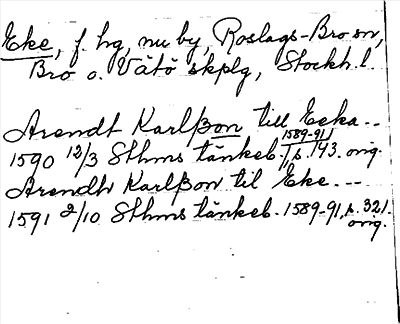 Eke, f. hg, nu by, Roslags-Bro sn,
Bro o. Vätö skplg, Stockh. l.
Arendt Karlßon till Eeka..
1590 12/3 Sthms tänkeb. 1589-91, s. 193. orig.
Arendh Karlßon til Eke ---
1591 2/10 Sthms tänkeb. 1589-91, s. 321.
orig.